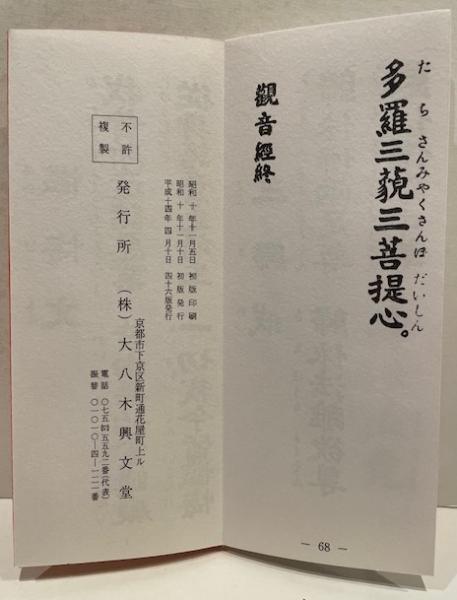 たらさんみゃくさんぼだいしん
多羅三藐三菩提心。
觀音經終
― 68 ―
昭和十年十一月五日 初版印刷
昭和十年十一月十日 初版発行
平成十四年四月十日 四十六版発行
不許
複製
京都市下京区新町通花屋町上ル
発行所 (株)大八木興文堂
電話 〇七五
五五九二番(代表)
振替 〇一〇一〇―四―一一一一番